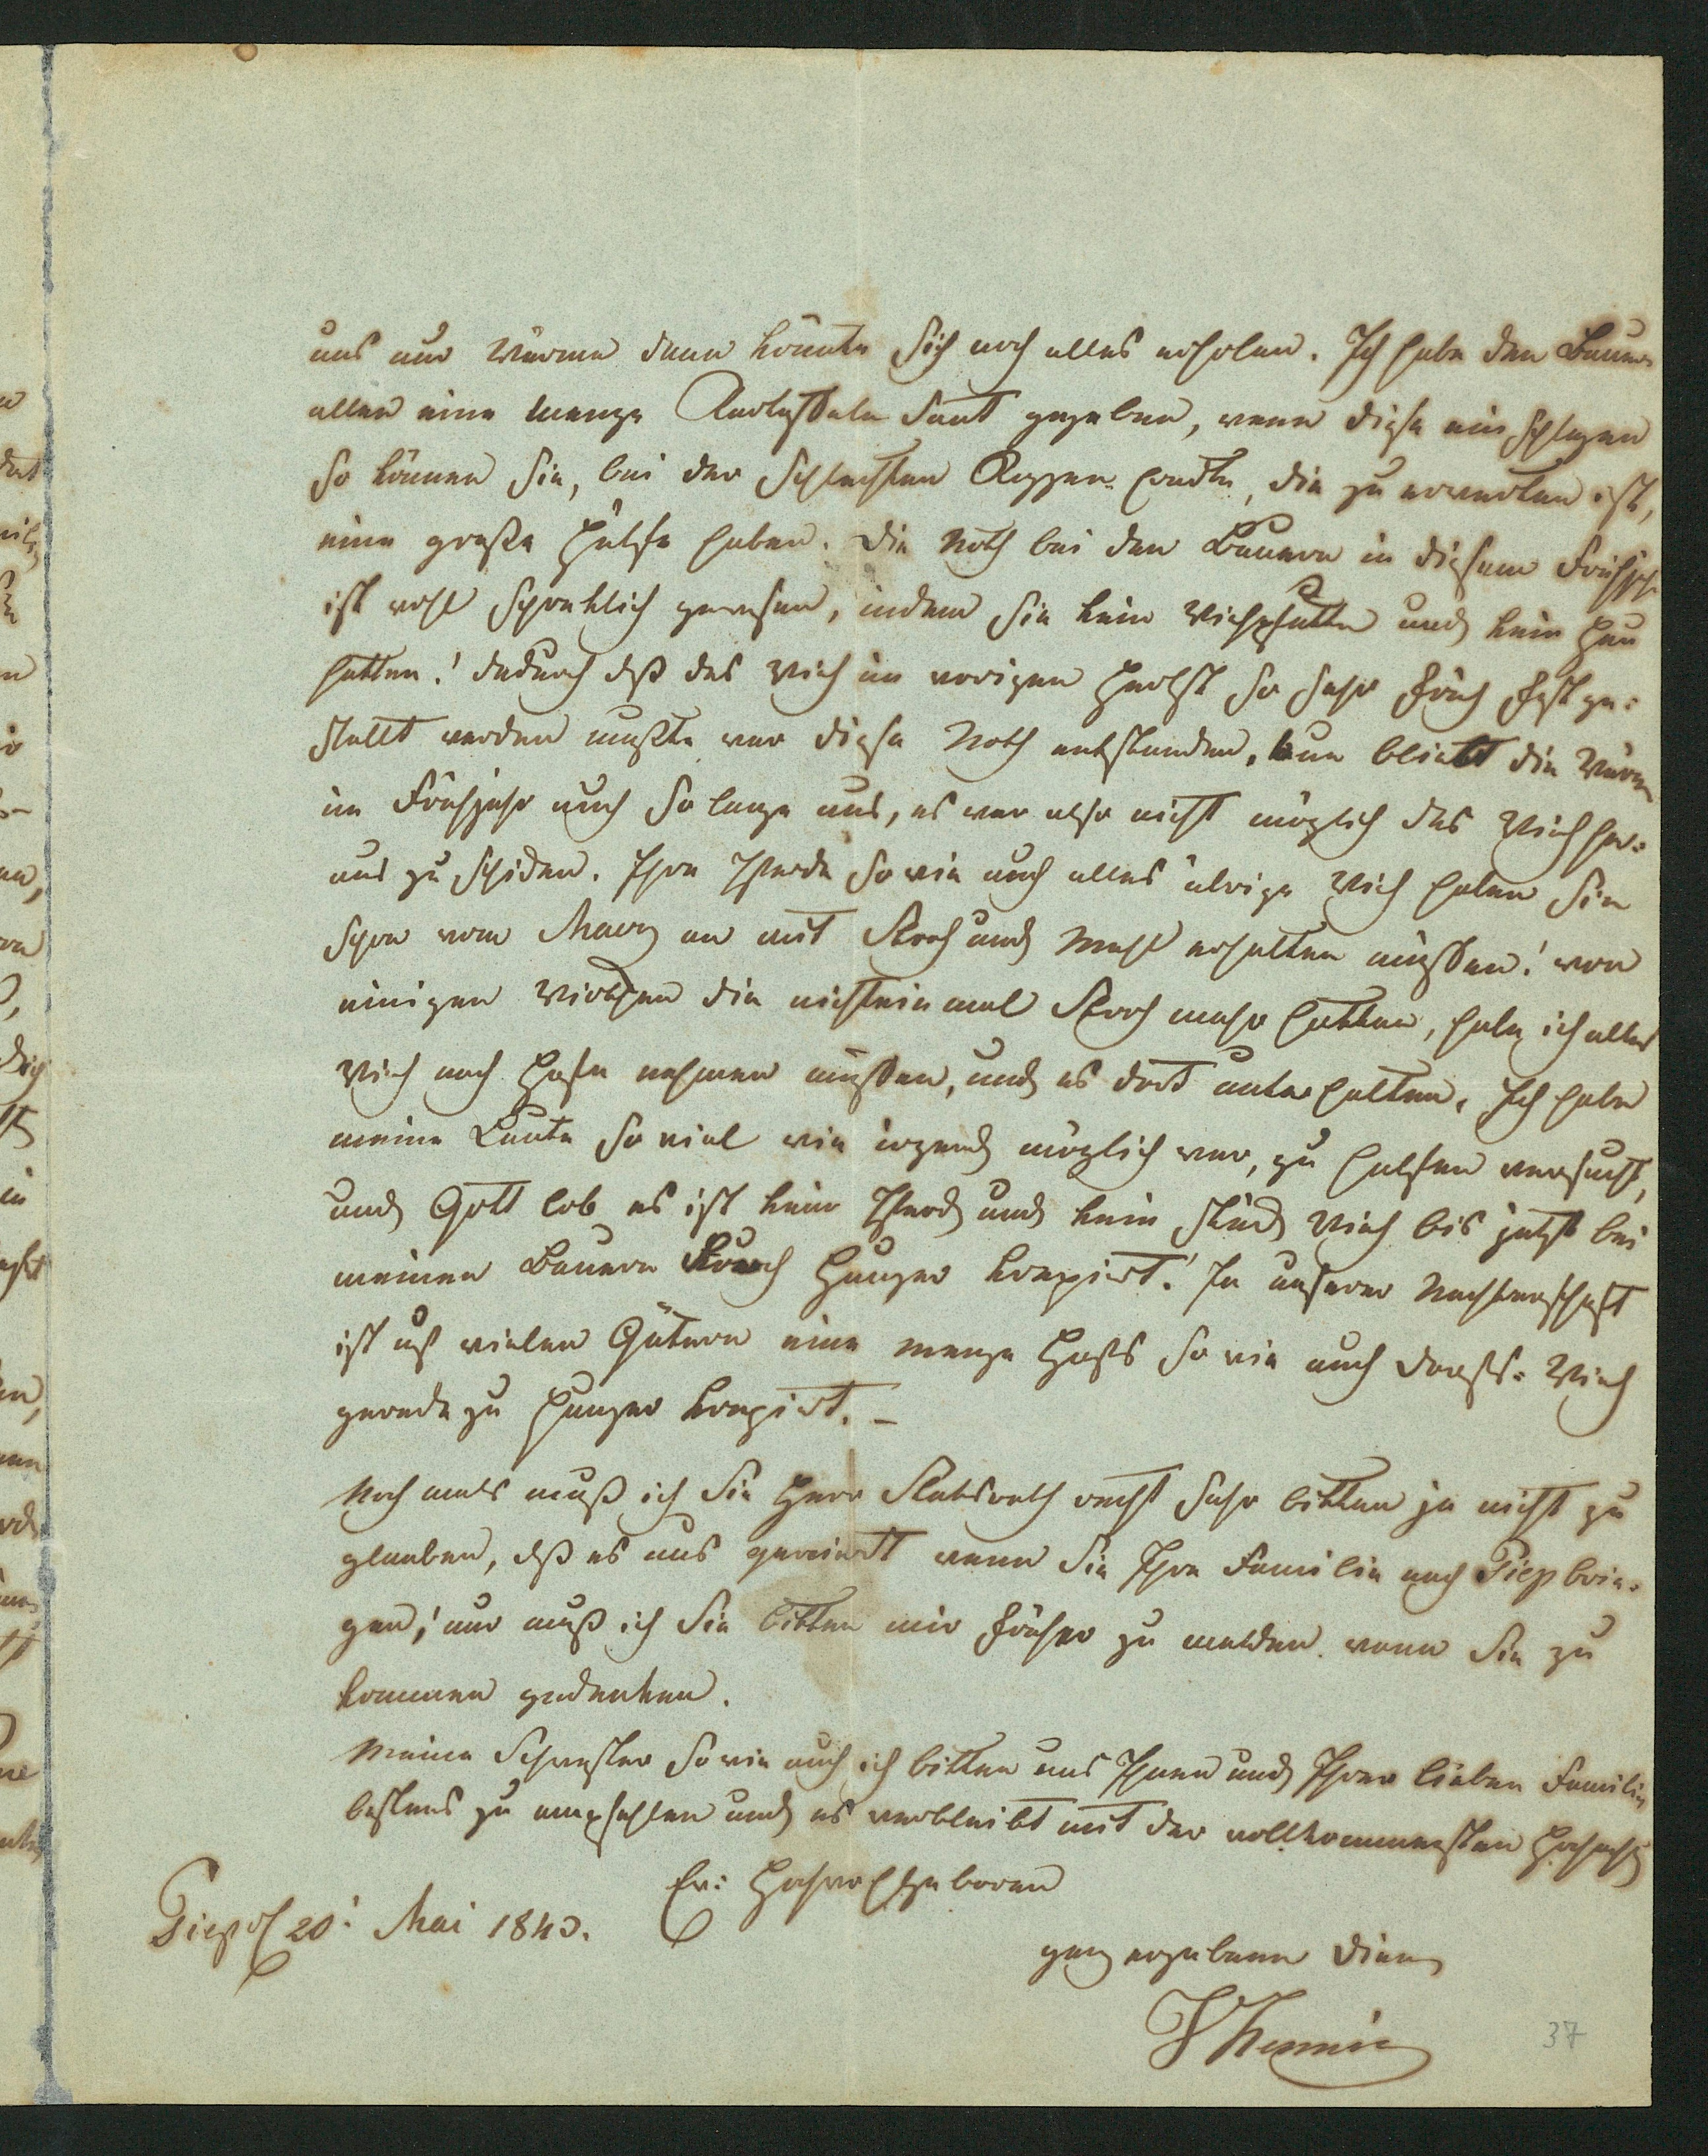 uns nur Wärme dann könnte sich noch alles erholen. Ich habe den Bauern
allen eine menge Kartoffeln Saat gegeben, wenn diese ein schlagen
so können sie, bei der schlechten Roggen Erndte, die zu erwarten ist,
eine große Hülfe haben. Die Noth bei den Bauern in diesem Frühjahr
ist wohl schreklich gewesen, indem sie kein Viehfutter und kein Heu
hatten! dadurch daß das Vieh im vorigen Herbst so sehr früh fest ge-
stellt werden mußte war diese Noth entstanden, nun bliebt die Wärme
im Frühjahr auch so lange aus, es war also nicht möglich das Vieh her-
aus zu schiken. Ihre Pferde so wie auch alles übrige Vieh haben sie
schon vom März an mit Stroh und Mehl erhalten müssen! von
einigen Wirthen die nicht ein mal Stroh mehr hatten, habe ich alles
Vieh nach Hofe nehmen müssen, und es dort unterhalten. Ich habe
meine Leute so viel wie irgend möglich war, zu helfen versucht,
und Gott lob es ist kein Pferd und kein Stück Vieh bis jetzt bei
meinen Bauern durch Hunger krepirt! In unserer Nachbarschaft
ist auf vielen Gütern eine menge Hofs so wie auch Dorfs-Vieh
gerade zu Hunger krepirt. –
Noch mals muß ich Sie Herr Statsrath recht sehr bitten ja nicht zu
glauben, daß es uns genirt wenn Sie Ihre Familie nach Piep brin-
gen! nur muß ich Sie bitten mir früher zu melden wenn Sie zu
kommen gedenken.
Meine Schwester so wie auch ich bitten uns Ihnen und Ihrer lieben Familie
bestens zu empfehlen und es verbleibt mit der vollkommensten Hochacht
Ew: Hochwohlgeboren
Piep d 20! Mai 1840.
ganz ergebener Diener
37